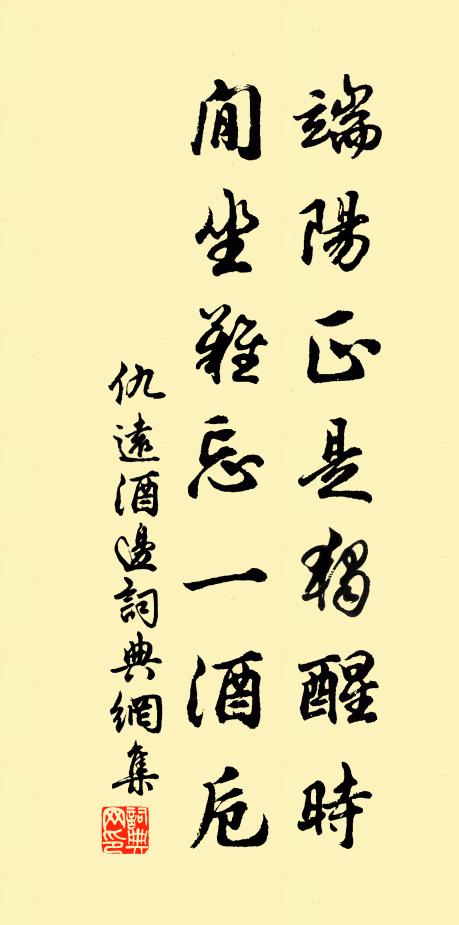 端陽正是獨醒時
閒坐難忘一酒卮
仇遠酒邊詞典網集
詞典網印